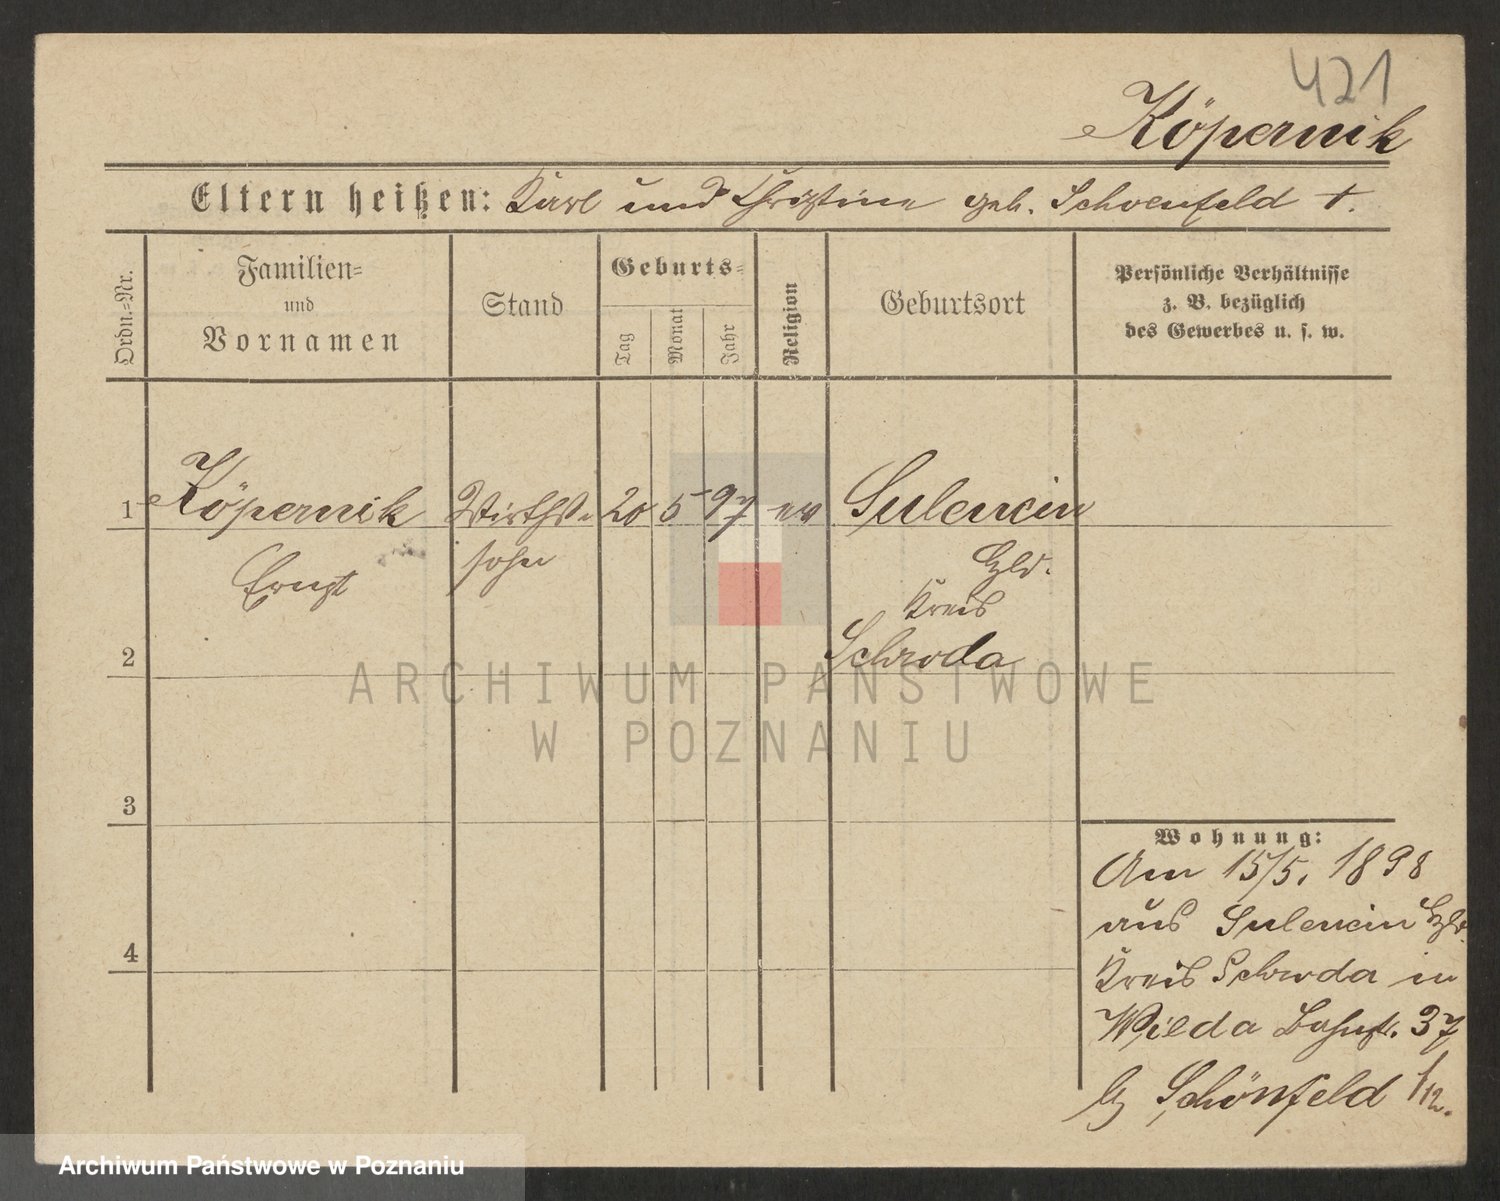 421
Köpernik
Eltern heißen: Karl und Christine geb. Schoenfeld †.
Ordn.=Nr.
Familien=
und
Vornamen
Stand
Geburts=
Tag
Monat
Jahr
Religion
Geburtsort
Persönliche Verhältnisse
z. B. bezüglich
des Gewerbes u. s. w.
1 Köpernik Wirths= 20 5 97 ev Sulencin
Ernst sohn Hld.
Kreis
2 Schroda
3
4
Wohnung:
Am 15/5. 1898
aus Sulencin Hld.
Kreis Schroda in
Wilda Bahnstr. 37
b/ Schönfeld
ARCHIWUM PAŃSTWOWE
W POZNANIU
Archiwum Państwowe w Poznaniu